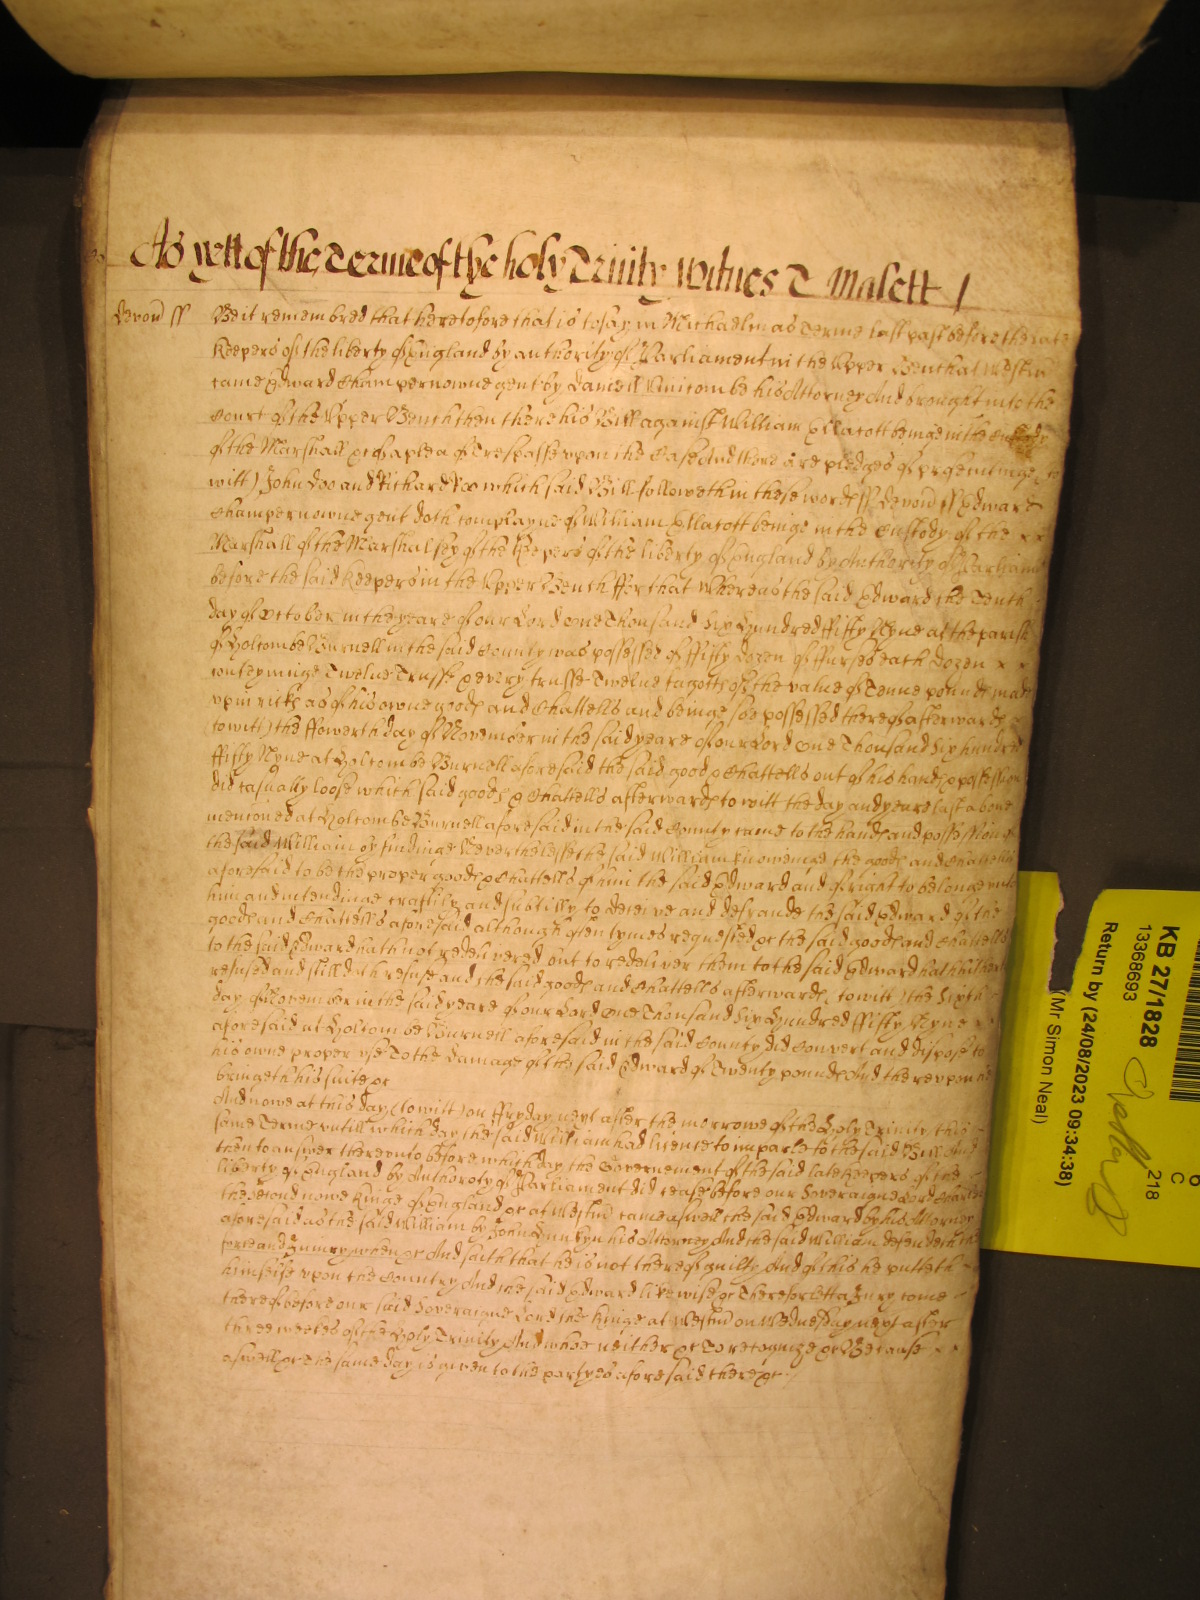 As yett of the Terme of the holy Trinity Witnes T Malett
Devon ss Be it remembred that heretofore that is to say in Michaelmas Terme last past before the late
Keepers of the liberty of England by authority of Parliament in the Upper Bench at Westm
came Edward Champernowne gent by Daniell his Attorney And brought into the
Court of the Upper Bench then there his Bill against William Ellacott beinge in the Custody
of the Marshall &c of a plea of Trespasse upon the Case And there are pledges of prosecutinge to
witt) John Doo and Richard Roo which said Bill followeth in these wordes ss Devon ss Edward
Champernowne gent doth complayne of William Ellacott beinge in the Custody of the
Marshall of the Marshalsey of the Keepers of the liberty of England by Authority of Parliamt
before the said Keepers in the Upper Bench ffor that Whereas the said Edward the Tenth
day of October in the yeare of our Lord One Thousand Six Hundred ffifty Nyne at the parish
of Holcombe Burnell in the said County was possessed of ffifty dozen of ffurses each dozen
conteyninge Twelve Trusse & every trusse Twelve fagotts of the value of Tenne pounds made
upp in ricks as of his owne goods and Chattells and beinge soe possessed thereof afterwards
to witt) the ffowerth day of November in the said yeare of our Lord One Thousand Six hundred
ffifty Nyne at Holcombe Burnell aforesaid the said goods & Chattells out of his hands & possession
did casually loose which said goods & Chattells afterwards to witt the day and yeare last above
mencioned at Holcombe Burnell aforesaid in the said County came to the hands and possession of
the said William by findinge Neverthelesse the said William knoweinge the goods and Chattells
aforesaid to be the proper goods & Chattells of him the said Edward and of right to belonge unto
him and intendinge craftily and subtilly to deceive and defraude the said Edward of the
goods and Chattells aforesaid although often tymes requested &c the said goods and Chattells
to the said Edward hath not redelivered but to redeliver them to the said Edward hath hitherto
refused and still doth refuse and the said goods and Chattells afterwards (to witt) the Sixth
day of November in the said yeare of our Lord One Thousand Six Hundred ffifty Nyne
aforesaid at Holcombe Burnell aforesaid in the said County did Convert and dispose to
his owne proper use To the damage of the said Edward of Twenty pounds And thereupon he
bringeth his suite &c
And nowe at this day (to witt) on ffryday next after the morrowe of the Holy Trinity this
same Terme untill which day the said William had licence to imparle to the said Bill And
then to answer thereunto before which day the Governement of the said late Keepers of the
liberty of England by Authoroty of Parliament did cease before our Soveraigne Lord Charles
the Second nowe Kinge of England &c at Westm came aswell the said Edward by his Attorney
aforesaid as the said William by John his Attorney And the said William defendeth the
force and Injury when &c And saith that he is not thereof guilty And of this he putteth
himselfe upon the Country And the said Edward likewise &c Therefore lett a Jury come
thereof before our said Soveraigne Lord the Kinge at Westm on Wednesday next after
three weekes of the Holy Trinity And whoe neither &c To recognize &c Because
aswell &c The same day is given to the partyes aforesaid there &c
KB 27/1828
13368693
Return by (24/08/2023 09:34:38)
(Mr Simon Neal)
C
218